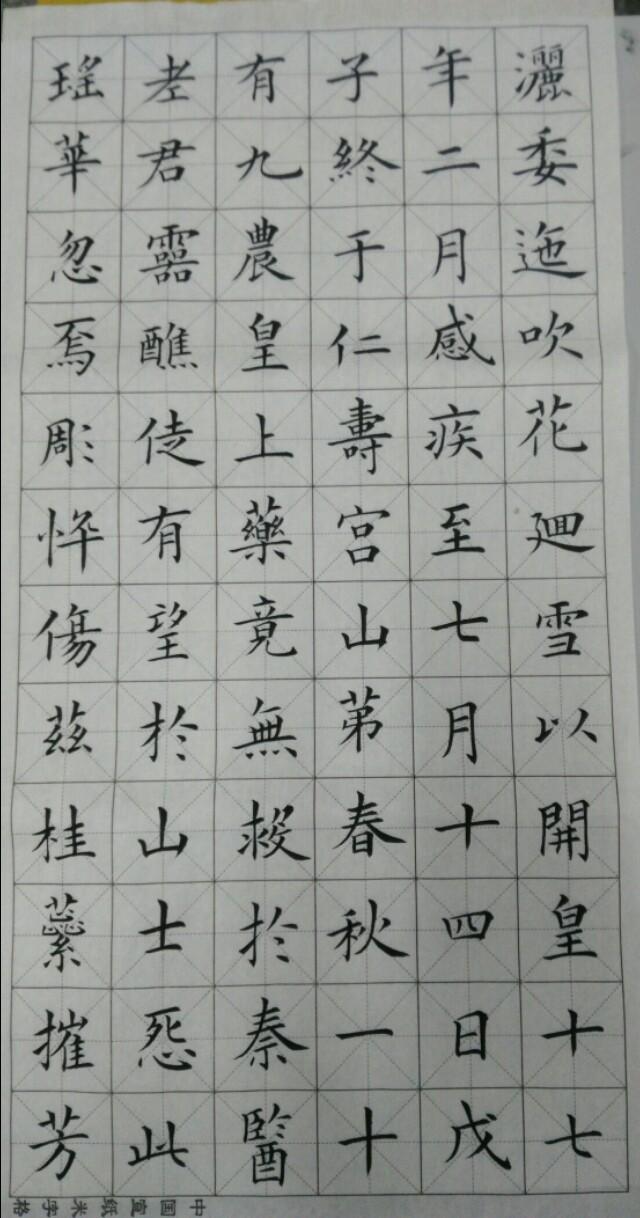 灑委迤吹花廻雪以開皇十七
年二月感疾至七月十四日戊
子終于仁壽宫山苐春秋一十
有九農皇上藥竟無救於秦醫
老君靈醮徒有望於山士怨此
瑤華忽焉彫悴傷茲桂蘂摧芳
中国宣纸米字格